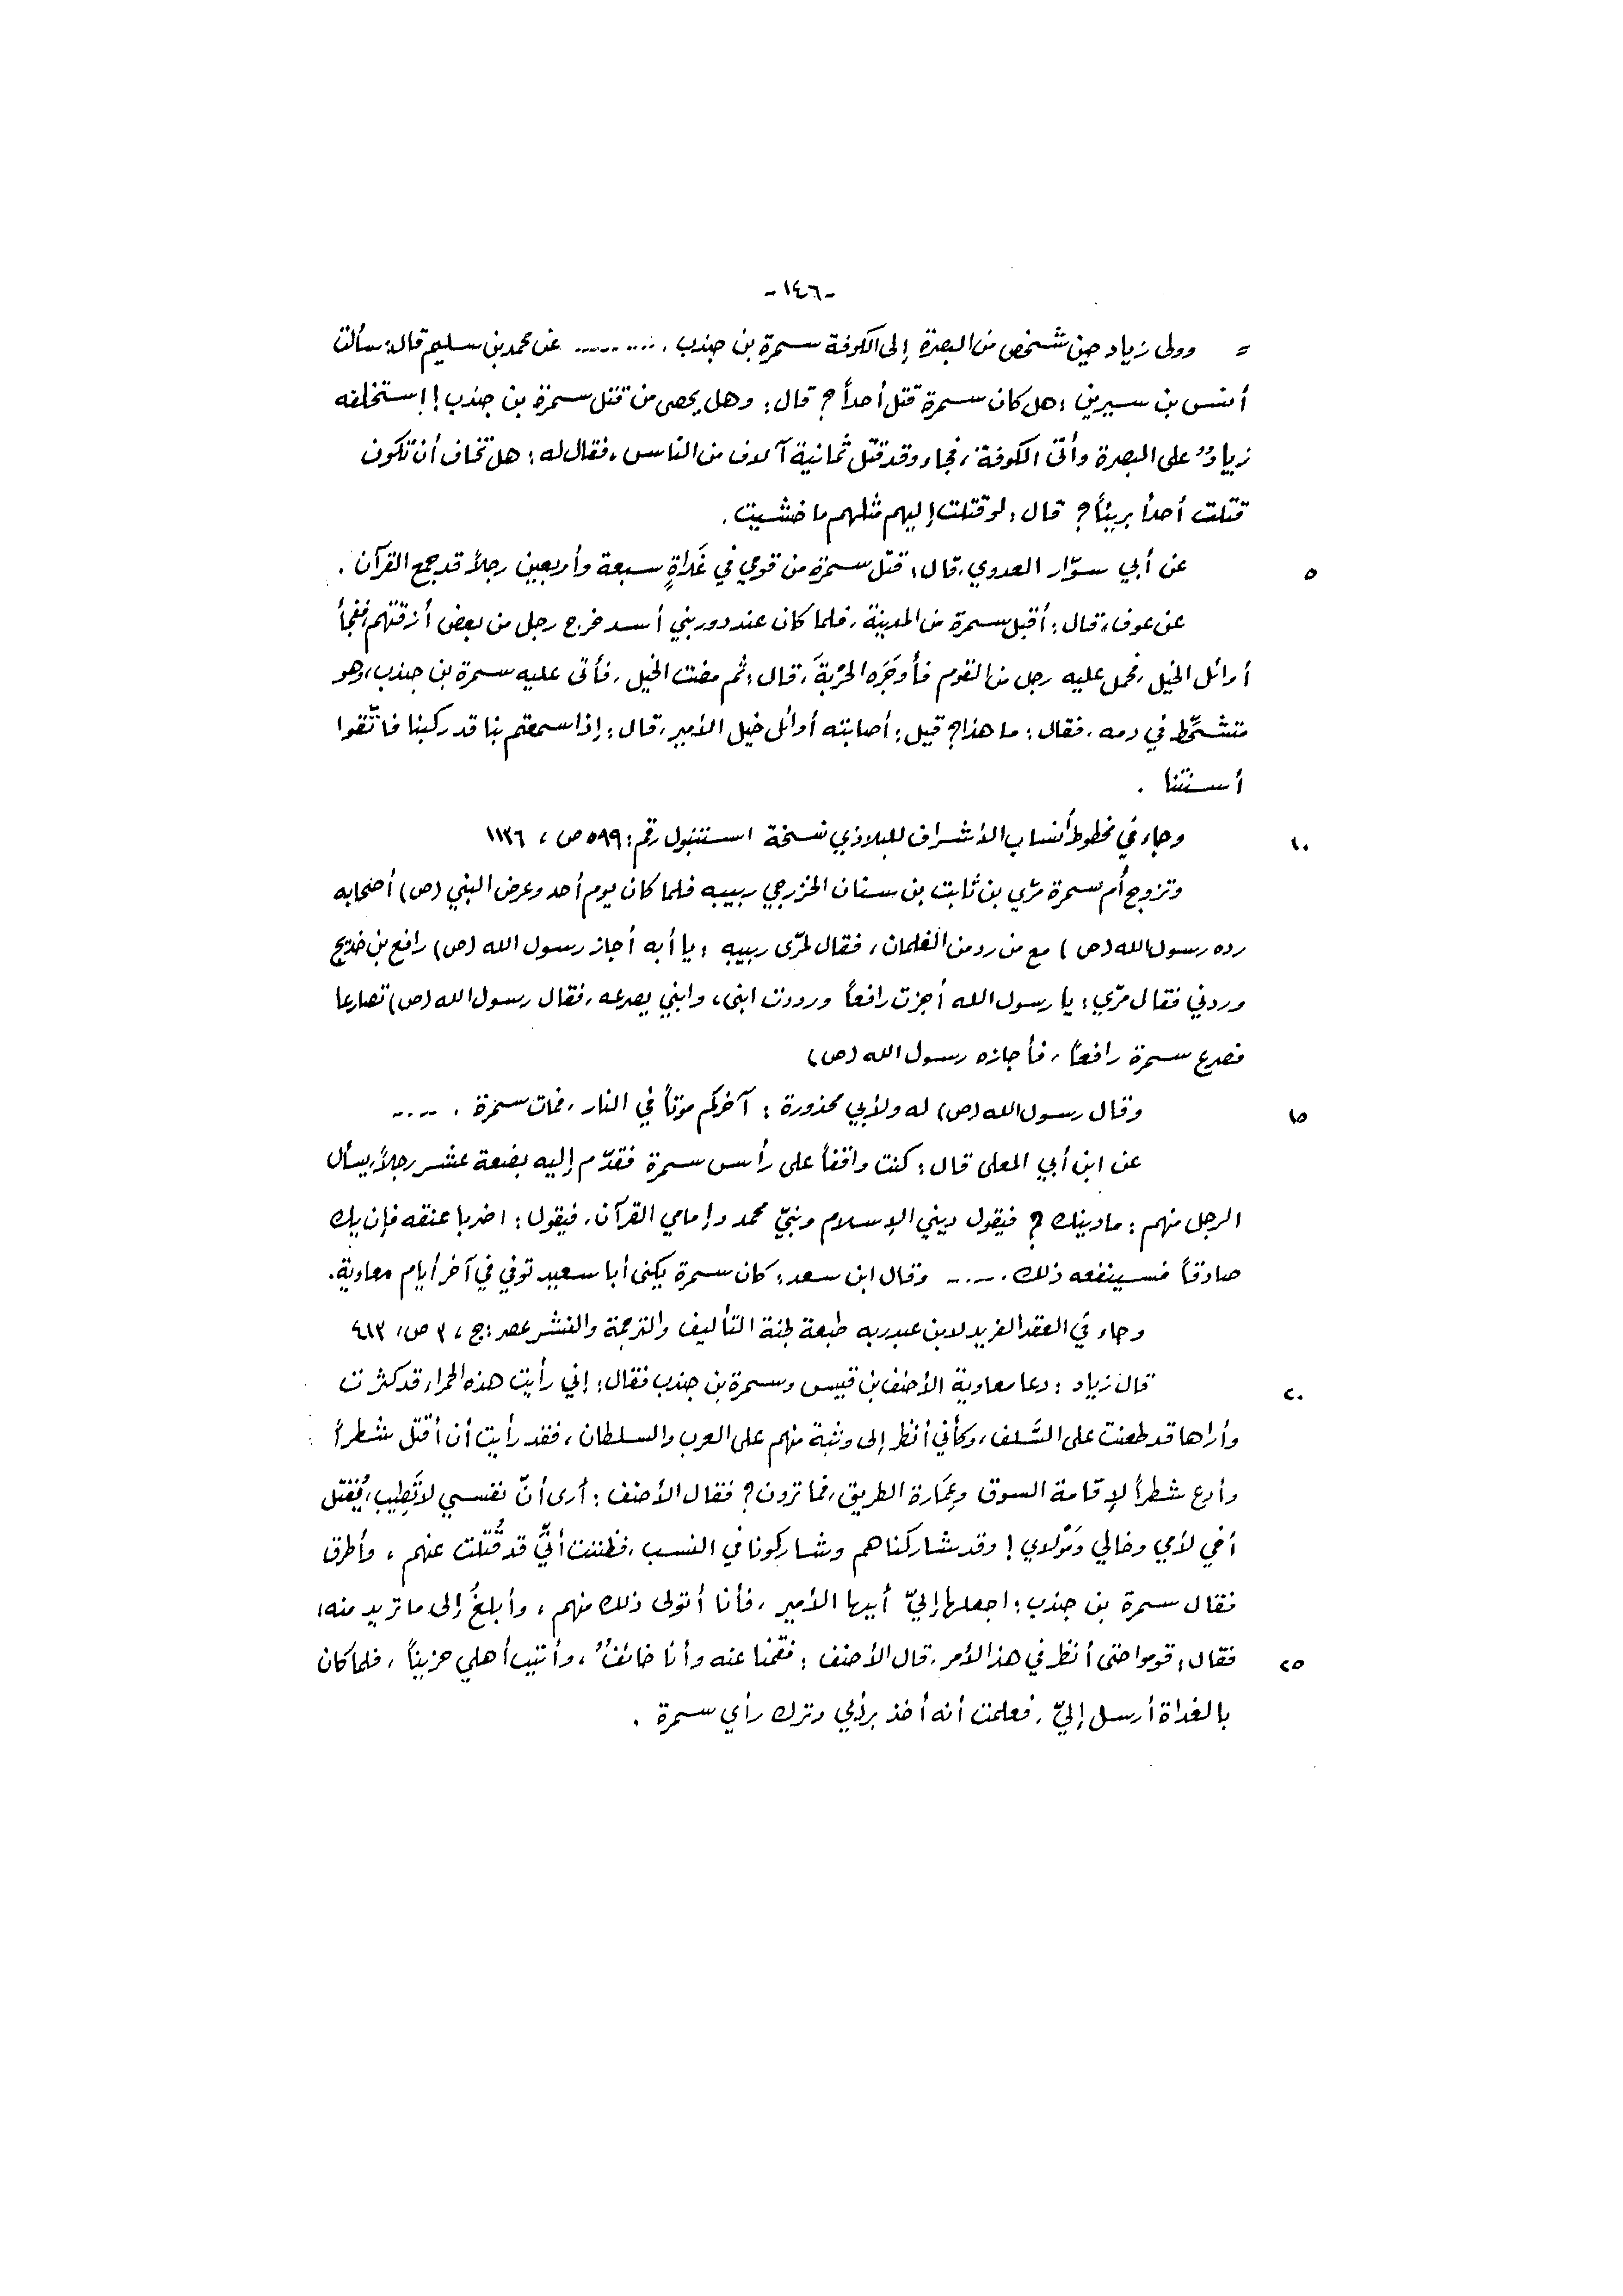 -١٤٦-
= وولى زياد حين شخص من البصرة إلى الكوفة سمرة بن جندب . ........ عن محمد بن سليم قال: سألت
أنس بن سيرين : هل كان سمرة قتل أحداً ؟ قال : وهل يحصى من قتل سمرة بن جندب ! استخلفه
زيادٌ على البصرة وأتى الكوفة ، فجاء وقد قتل ثمانية آلاف من الناس ، فقال له : هل تخاف أن تكون
قتلت أحداً بريئاً ؟ قال : لو قتلت إليهم مثلهم ما خشيت .
٥ عن أبي سوّار العدوي ، قال : قتل سمرة من قومي في غَداةٍ سبعة وأربعين رجلاً قد جمع القرآن .
عن عوف ، قال : أقبل سمرة من المدينة ، فلما كان عند دور بني أسد خرج رجل من بعض أزقتهم ، ففجأ
أوائل الخيل ، فحمل عليه رجل من القوم فأوجَرَه الحَرْبةَ ، قال : ثم مضت الخيل ، فأتى عليه سمرة بن جندب ، وهو
متشحِّط في دمه ، فقال : ما هذا ؟ قيل : أصابته أوائل خيل الأمير ، قال : إذا سمعتم بنا قد ركبنا فاتّقوا
أسنتنا .
١٠ وجاء في مخطوط أنساب الأشراف للبلاذري نسخة استنبول رقم : ٥٩٩ ص ، ١١٣٦
وتزوج أم سمرة مرّي بن ثابت بن سنان الخزرجي ربيبه فلما كان يوم أحد وعرض النبي (ص) أصحابه
رده رسول الله (ص) مع من رد من الغلمان ، فقال لمرّى ربيبه : يا أبه أجاز رسول الله (ص) رافع بن خديج
وردني فقال مرّي : يا رسول الله أجزت رافعاً ورددت ابنى ، وابني يصرعه ، فقال رسول الله (ص) تصارعا
فصرع سمرة رافعاً ، فأجازه رسول الله (ص)
١٥ وقال رسول الله (ص) له ولأبي محذورة : آخركم موتاً في النار ، فمات سمرة . .....
عن ابن أبي المعلى قال : كنت واقفاً على رأس سمرة فقدّم إليه بضعة عشر رجلاً ، يسأل
الرجل منهم : ما دينك ؟ فيقول ديني الإسلام ونبيّ محمد وإمامي القرآن ، فيقول : اضربا عنقه فإن يك
صادقاً فسينفعه ذلك . ..... وقال ابن سعد : كان سمرة يكنى أبا سعيد توفي في آخر أيام معاوية .
وجاء في العقد الفريد لابن عبد ربه طبعة لجنة التأليف والترجمة والنشر بمصر : ج ، ٣ ص ، ٤١٣
٢٠ قال زياد : دعا معاوية الأحنف بن قيس وسمرة بن جندب فقال : إني رأيت هذه الحمراء قد كثرت
وأراها قد طعنت على السَّلف ، وكأني أنظر إلى وثبة منهم على العرب والسلطان ، فقد رأيت أن أقتل شطراً
وأدع شطراً لإقامة السوق وعِمَارة الطريق ، فما ترون ؟ فقال الأحنف : أرى أنّ نفسي لا تَطِيب ، يُقتل
أخي لأمي وخالي ومَوْلاي ! وقد شاركناهم وشاركونا في النسب ، فظننت أنّي قد قُتلت عنهم ، وأطرق
فقال سمرة بن جندب : اجعلها إليّ أيها الأمير ، فأنا أتولى ذلك منهم ، وأبلغُ إلى ما تريد منه ،
٢٥ فقال : قوموا حتى أنظر في هذا الأمر ، قال الأحنف : فقمنا عنه وأنا خائفٌ ، وأتيت أهلي حزيناً ، فلما كان
بالغداة أرسل إليّ ، فعلمت أنه أخذ برأيي وترك رأي سمرة .